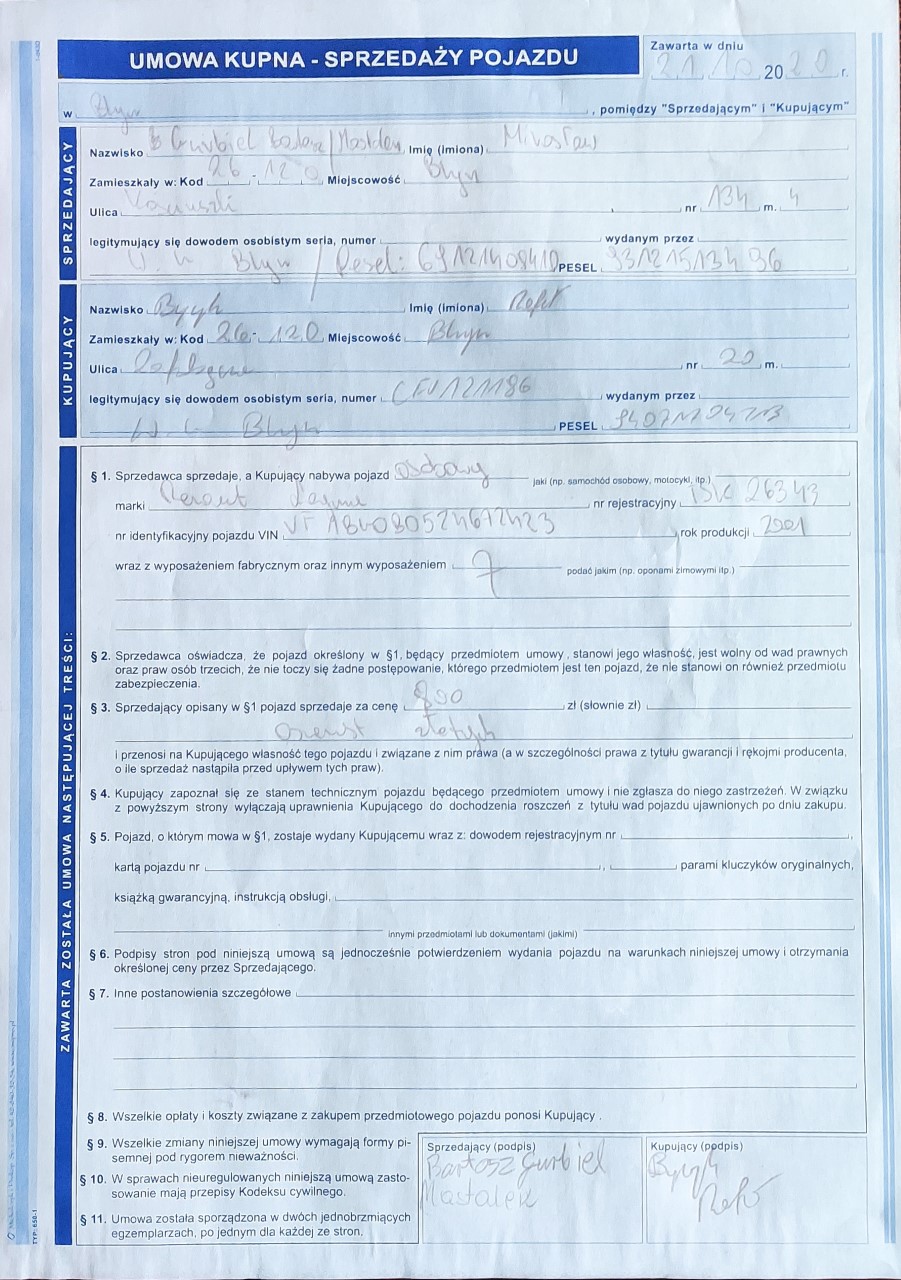 UMOWA KUPNA - SPRZEDAŻY POJAZDU
Zawarta w dniu
21 10 2020 r.
w , pomiędzy "Sprzedającym" i "Kupującym"
SPRZEDAJĄCY
Nazwisko Imię (imiona) Mirosław
Zamieszkały w: Kod 26-120 Miejscowość Bliżyn
Ulica nr 134 m. 4
legitymujący się dowodem osobistym seria, numer wydanym przez
/ Pesel: PESEL
KUPUJĄCY
Nazwisko Imię (imiona)
Zamieszkały w: Kod 26-120 Miejscowość
Ulica nr 20 m.
legitymujący się dowodem osobistym seria, numer wydanym przez
PESEL
ZAWARTA ZOSTAŁA UMOWA NASTĘPUJĄCEJ TREŚCI:
§ 1. Sprzedawca sprzedaje, a Kupujący nabywa pojazd osobowy jaki (np. samochód osobowy, motocykl, itp.)
marki nr rejestracyjny
nr identyfikacyjny pojazdu VIN rok produkcji 2001
wraz z wyposażeniem fabrycznym oraz innym wyposażeniem podać jakim (np. oponami zimowymi itp.)
§ 2. Sprzedawca oświadcza, że pojazd określony w §1, będący przedmiotem umowy , stanowi jego własność, jest wolny od wad prawnych
oraz praw osób trzecich, że nie toczy się żadne postępowanie, którego przedmiotem jest ten pojazd, że nie stanowi on również przedmiotu
zabezpieczenia.
§ 3. Sprzedający opisany w §1 pojazd sprzedaje za cenę 800 zł (słownie zł)
złotych
i przenosi na Kupującego własność tego pojazdu i związane z nim prawa (a w szczególności prawa z tytułu gwarancji i rękojmi producenta,
o ile sprzedaż nastąpiła przed upływem tych praw).
§ 4. Kupujący zapoznał się ze stanem technicznym pojazdu będącego przedmiotem umowy i nie zgłasza do niego zastrzeżeń. W związku
z powyższym strony wyłączają uprawnienia Kupującego do dochodzenia roszczeń z tytułu wad pojazdu ujawnionych po dniu zakupu.
§ 5. Pojazd, o którym mowa w §1, zostaje wydany Kupującemu wraz z: dowodem rejestracyjnym nr ,
kartą pojazdu nr , parami kluczyków oryginalnych,
książką gwarancyjną, instrukcją obsługi,
innymi przedmiotami lub dokumentami (jakimi)
§ 6. Podpisy stron pod niniejszą umową są jednocześnie potwierdzeniem wydania pojazdu na warunkach niniejszej umowy i otrzymania
określonej ceny przez Sprzedającego.
§ 7. Inne postanowienia szczegółowe
§ 8. Wszelkie opłaty i koszty związane z zakupem przedmiotowego pojazdu ponosi Kupujący .
§ 9. Wszelkie zmiany niniejszej umowy wymagają formy pi-
semnej pod rygorem nieważności.
§ 10. W sprawach nieuregulowanych niniejszą umową zasto-
sowanie mają przepisy Kodeksu cywilnego.
§ 11. Umowa została sporządzona w dwóch jednobrzmiących
egzemplarzach, po jednym dla każdej ze stron.
Sprzedający (podpis)
Bartosz Gurbiel
Mastalek
Kupujący (podpis)
TYP: 650-1